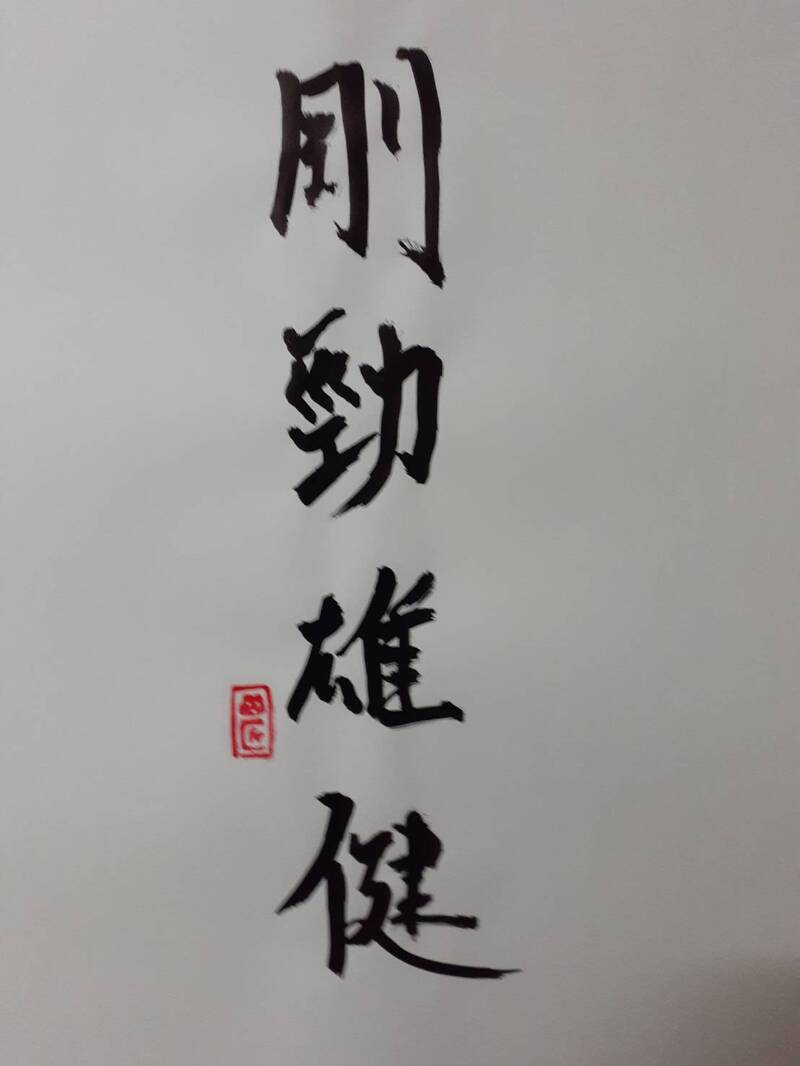 剛勁雄健